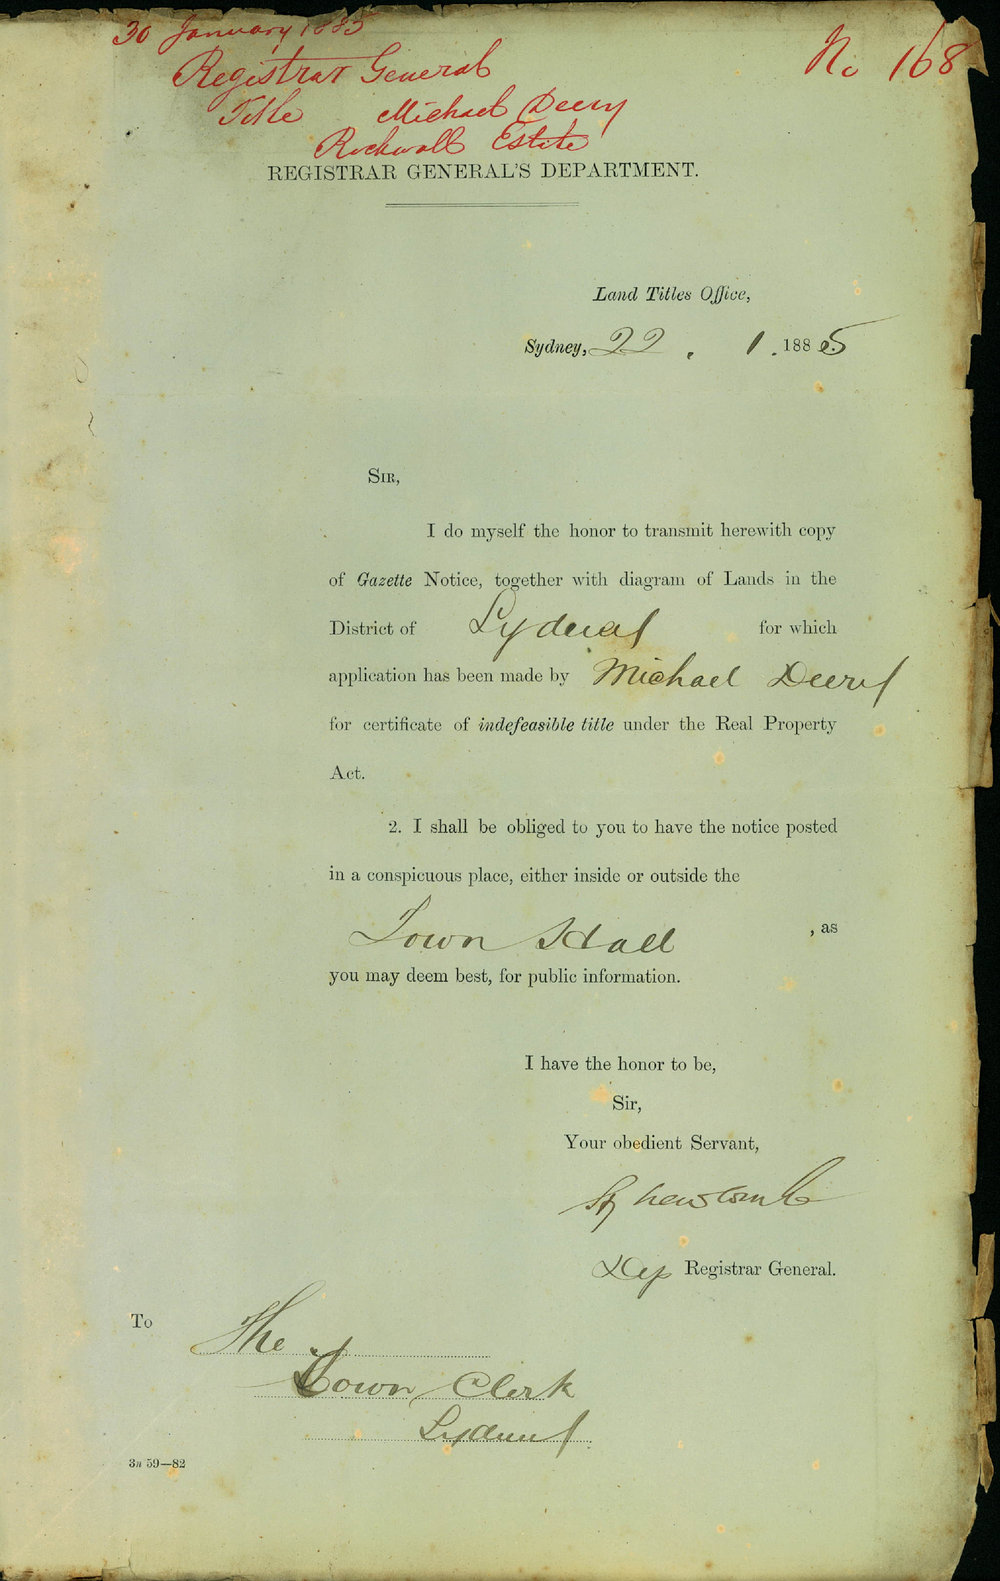 30 January 1885
No 168
Registrar General
Title Michael Deery
Rockwall Estate
REGISTRAR GENERAL'S DEPARTMENT.
Land Titles Office,
Sydney, 22 . 1 . 1885
SIR,
I do myself the honor to transmit herewith copy
of Gazette Notice, together with diagram of Lands in the
District of Sydney for which
application has been made by Michael Deery
for certificate of indefeasible title under the Real Property
Act.
2. I shall be obliged to you to have the notice posted
in a conspicuous place, either inside or outside the
Town Hall , as
you may deem best, for public information.
I have the honor to be,
Sir,
Your obedient Servant,
Newcomb
Dep Registrar General.
To
The
Town Clerk
Sydney
3n 59—82